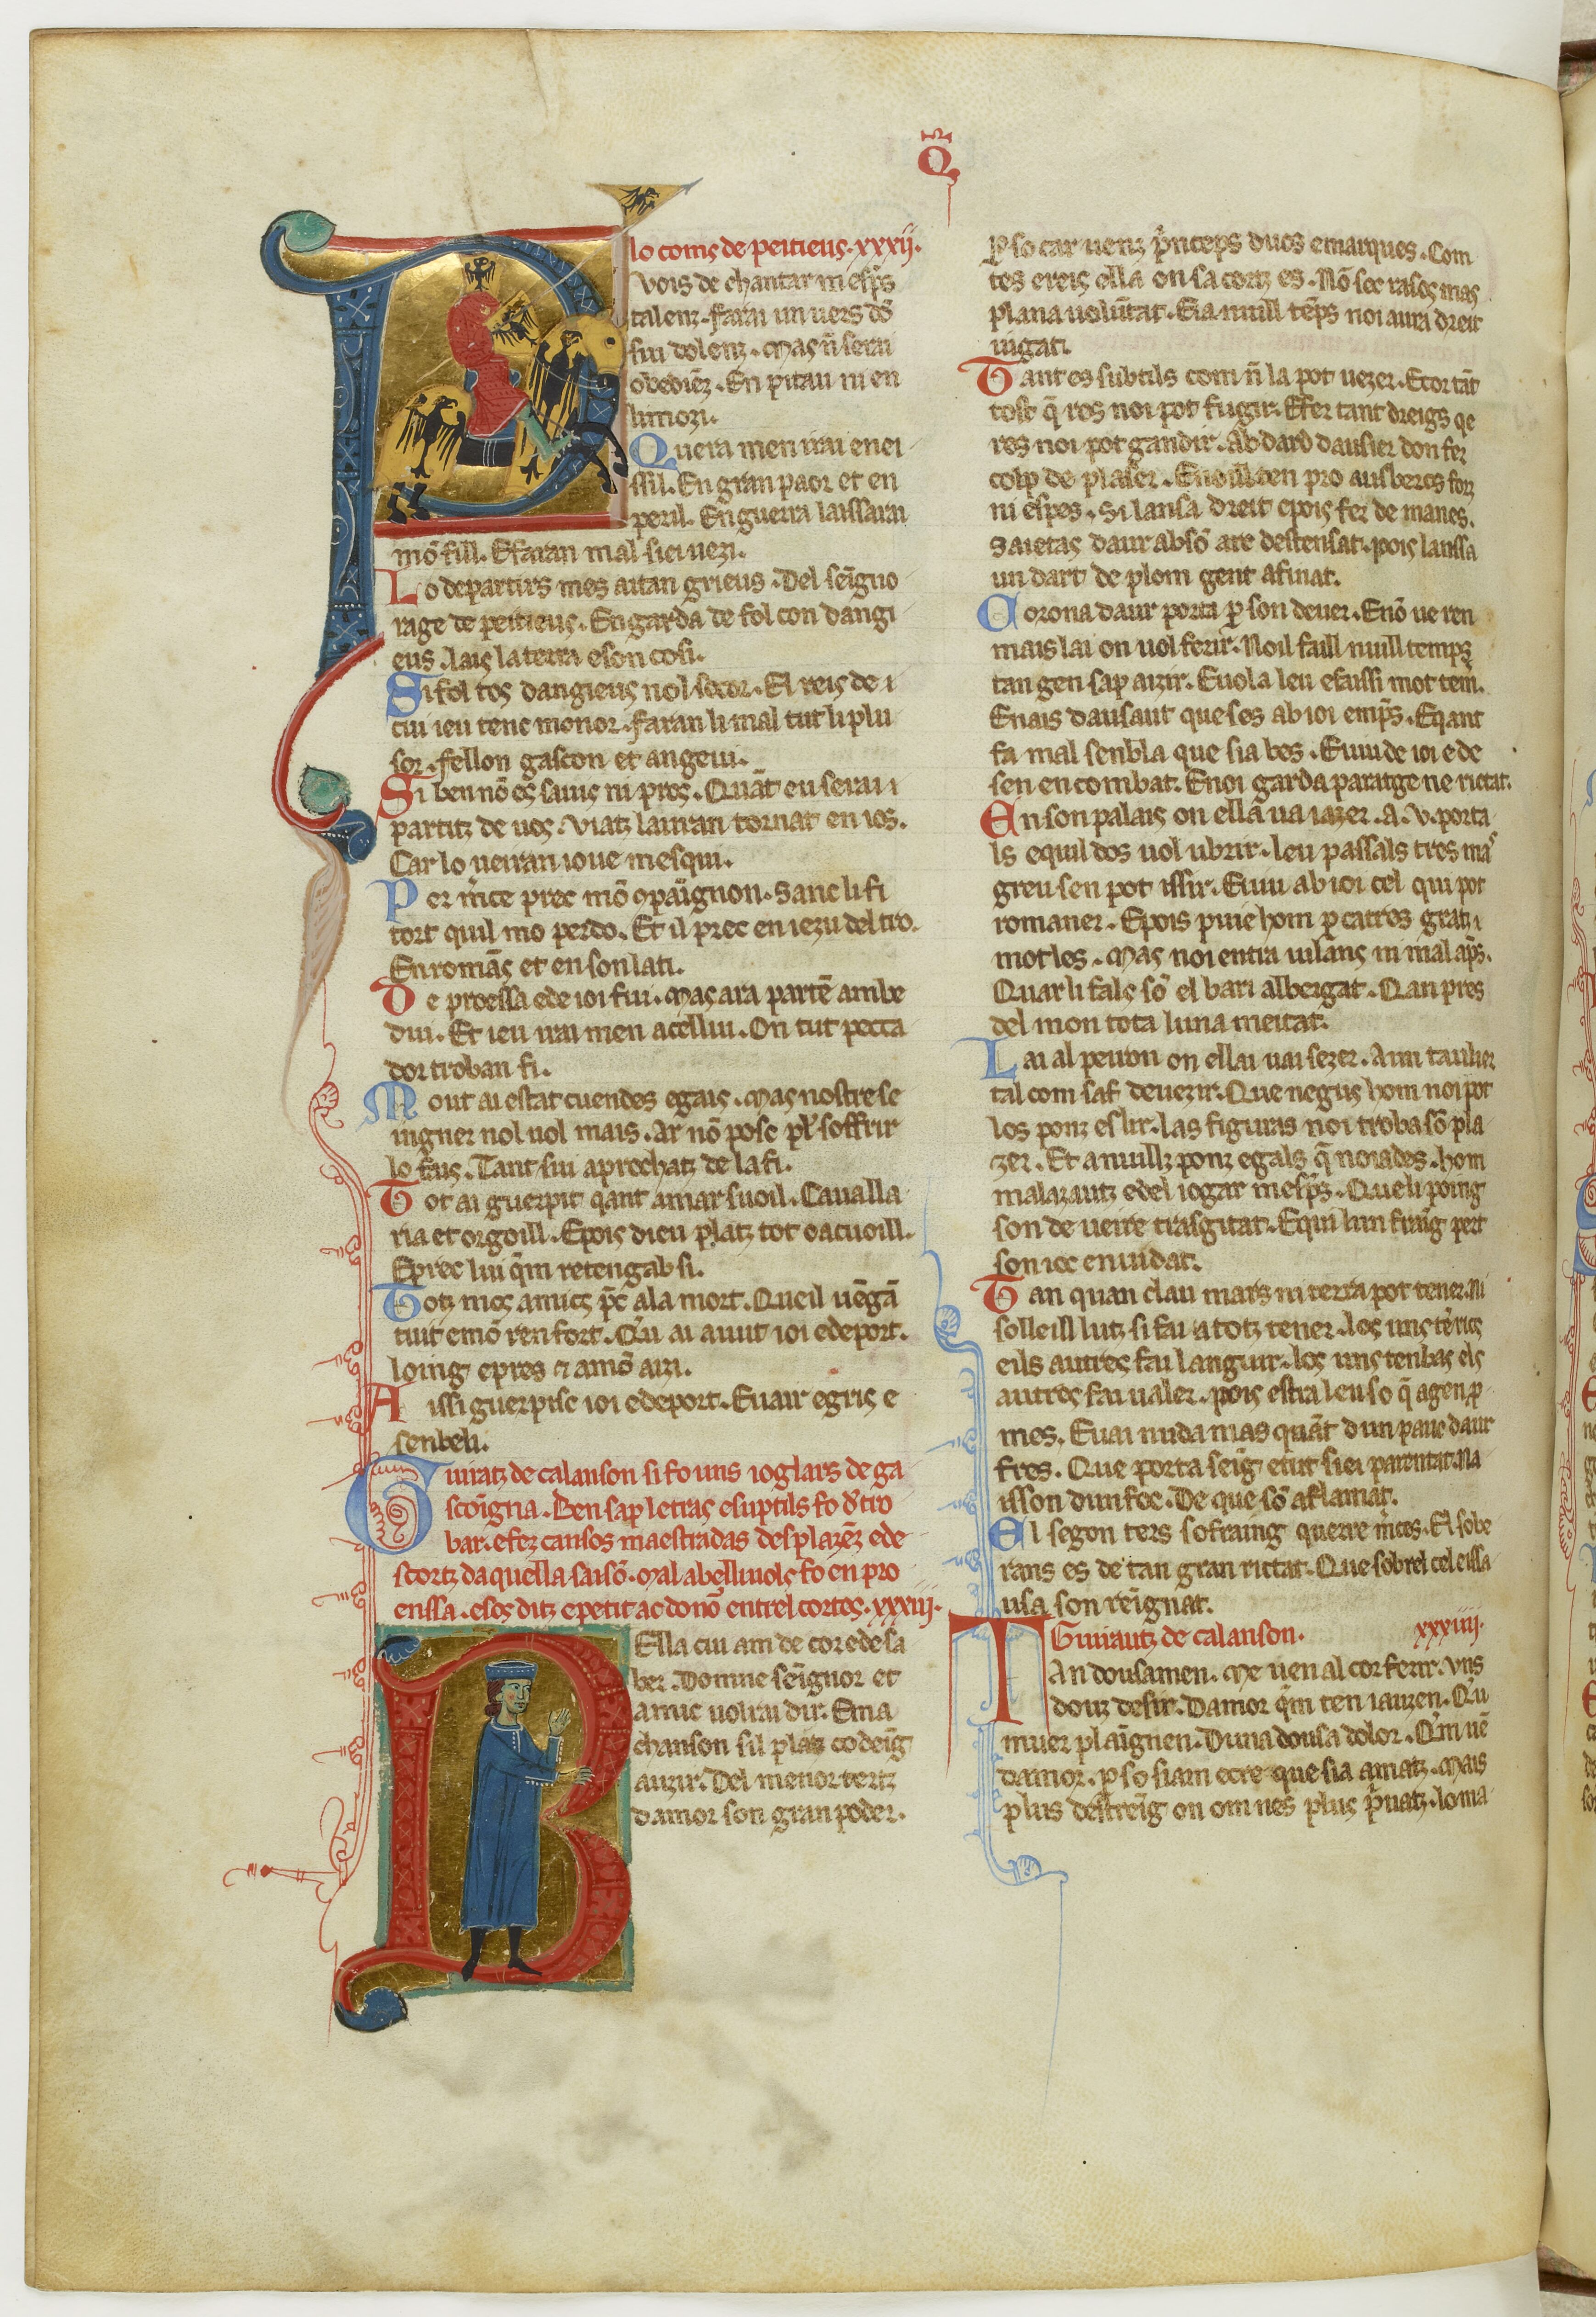 Q
lo coms de peitieus. xxxij.
Pvois de chantar mespˢ
talenz. Farai un uers dō
sui dolenz. Mas ñ serai
obediēz. En pitau ni en
limozi.
Quera men irai enei
ssil. En gran paor et en
peril. En guerra laissarai
mō fill. E faran mal siei uezi.
Lo departirs mes aitan grieus. Del seīgno
rage de peitieus. En garda de folcon dangi
eus. lais la terra e son cosi.
Si fol cos dangieus nol socor. El reis de i
cui ieu tenc monor. faran li mal tut li plu
sor. fellon gascon et angeui.
Si ben nō es sauis ni pros. Quāt eu serai i
partitz de uos. Viatz lauran tornat en ios.
Car lo ueiran ioue mesqui.
Per m̄ce prec mō ꝯpaīgnon. Sanc li fi
tort quil mo perdo. Et il prec en iezu del tro.
En romās et en son lati.
De proessa e de ioi fui. Mas ara partē ambe
dui. Et ieu irai men a cellui. On tut pecca
dor troban fi.
Mout ai estat cuendes e gais. Mas nostre se
ingner nol uol mais. Ar nō posc pl᷒ soffrir
lo fais. Tant sui aprochatz de la fi.
Tot ai guerpit qant amar suoil. Caualla
ria et orgoill. E pois dieu platz tot o acuoill.
E prec lui q̄m reteng ab si.
Totz mos amics p̄c a la mort. Queil uēgā
tuit emō ren fort. Qu ai auut ioi e deport.
loing e pres ⁊ a mō aizi.
Aissi guerpisc ioi e deport. E uair e gris e
senbeli.
Guiratz de calanson si fo uns ioglars de ga
scoīgna. Ben sap letras e suptils fo d̄ tro
bar. e fez cansos maestradas desplazēz e de
scortz daquella saisō. Mal abelliuols fo en pro
enssa. e sos ditz e petit ac de nō entrels cortes. xxxiij.
BElla cui am de cor e de sa
ber. Domne seīgnor et
amic uolrai dir. E ma
chanson sil platz co deīg
auzir. Del menor tertz
damor son gran poder.
ꝑ so car uenz p̄nceps ducs e marques. Com
tes e reis e lla on sa cortz es. Nō sec razos mas
plana uolūtat. E ia nuill tēps noi aura dreit
iugat.
Tant es subtils com ñ la pot uezer. E cor tāt
tost q̄ res noi pot fugir. E fer tant dreigs qe
res noi pot gandir. Ab dard dassier don fer
colp de plazer. E noill ten pro ausbercs fortz
ni espes. Si lansa dreit e pois fer de manes.
Saietas daur ab sō arc destensat. pois lanssa
un dart de plom gent afinat.
Corona daur porta ꝑ son deuer. E nō ue ren
mais lai on uol ferir. Noil faill nuill temps
tan gen sap aizir. E uola leu e faissi mot tem̄.
E nais dausaut que ses ab ioi emp̄s. E qant
fa mal senbla que sia bes. E uiu de ioi e de
sen en combat. E noi garda paratge ne rictat.
En son palais on ella ua iazer. a. v. porta
ls e quil dos uol ubrir. leu passals tres mas
greu sen pot issir. E uiu ab ioi cel qui pot
romaner. E pois puie hom ꝑ catres gratz
mot les. Mas noi entra uilans ni mal ap̄s.
Quar li fals sō el bari albergat. Qan pres
del mon tota luna meitat.
Lai al peiron on ellai uai sezer. A un taulier
tal com saf deuezir. Que negus hom noi pot
los ponz eslir. las figuras noi troba sō pla
zer. Et a nuillz ponz egals q̄ noi ades. hom
malazautz e del iogar mespˢ. Que li poing
son de ueire trasgitat. E qui lun fraīg pert
son ioc enuidat.
Tan quan clau mars ni terra pot tener. Ni
solleill lutz si fai a totz tener. los uns te rics
e ils autres fai languir. los uns ten bas els
autres fai ualer. pois estra leu so q̄ a gen ꝑ
mes. E uai nuda mas quāt dun pauc daur
fres. Que porta seīg e tut siei parentat. Na
isson dun foc. De que sō aflamat.
El segon ters sofraing querre m̄ces. El sobe
rans es de tan gran rictat. Que sobrel cel eissa
usa son reīgnat.
Guirautz de calanson. xxxiiij.
TAn dousamen. Me uen al cor ferir. Vns
douz desir. Damor q̄m ten iauzen. Qu
muer plaīgnen. Duna dousa dolor. Q̄m uē
damor. ꝑ so siam ecre que sia amatz. Mais
plus destreīg on om nes plus p̄uatz. lo ma